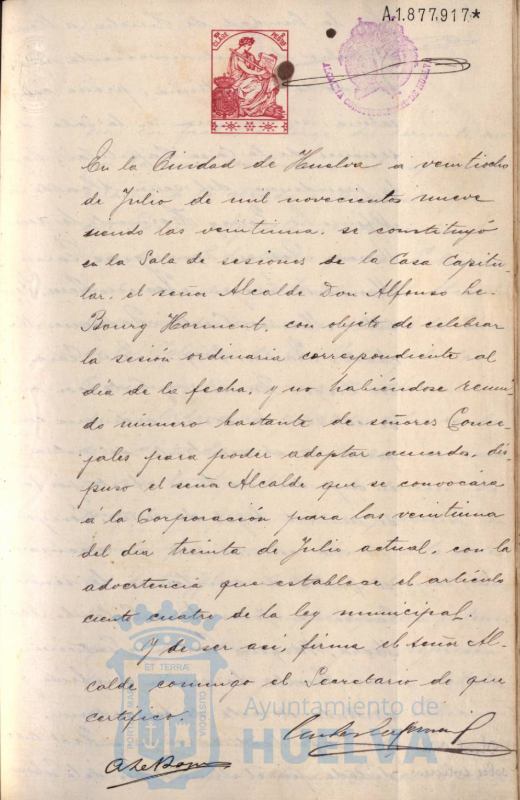 A.1.877,917*
En la Ciudad de Huelva a veintiocho
de Julio de mil novecientos nueve
siendo las veintiuna, se constituyó
en la Sala de sesiones de la Casa Capitu-
lar, el señor Alcalde Don Alfonso Le
Bourg Horment, con objeto de celebrar
la sesión ordinaria correspondiente al
día de la fecha, y no habiéndose reuni-
do número bastante de señores Conce-
jales para poder adoptar acuerdos, dis-
puso el señor Alcalde que se convocára
á la Corporación para las veintiuna
del día treinta de Julio actual, con la
advertencia que establece el artículo
ciento cuatro de la ley municipal.
Y de ser así, firma el señor Al-
calde conmigo el Secretario de que
certifico.
A Le Bourg
ET TERRÆ
PORTUS MARIS
CUSTODIA
Ayuntamiento de
HUELVA